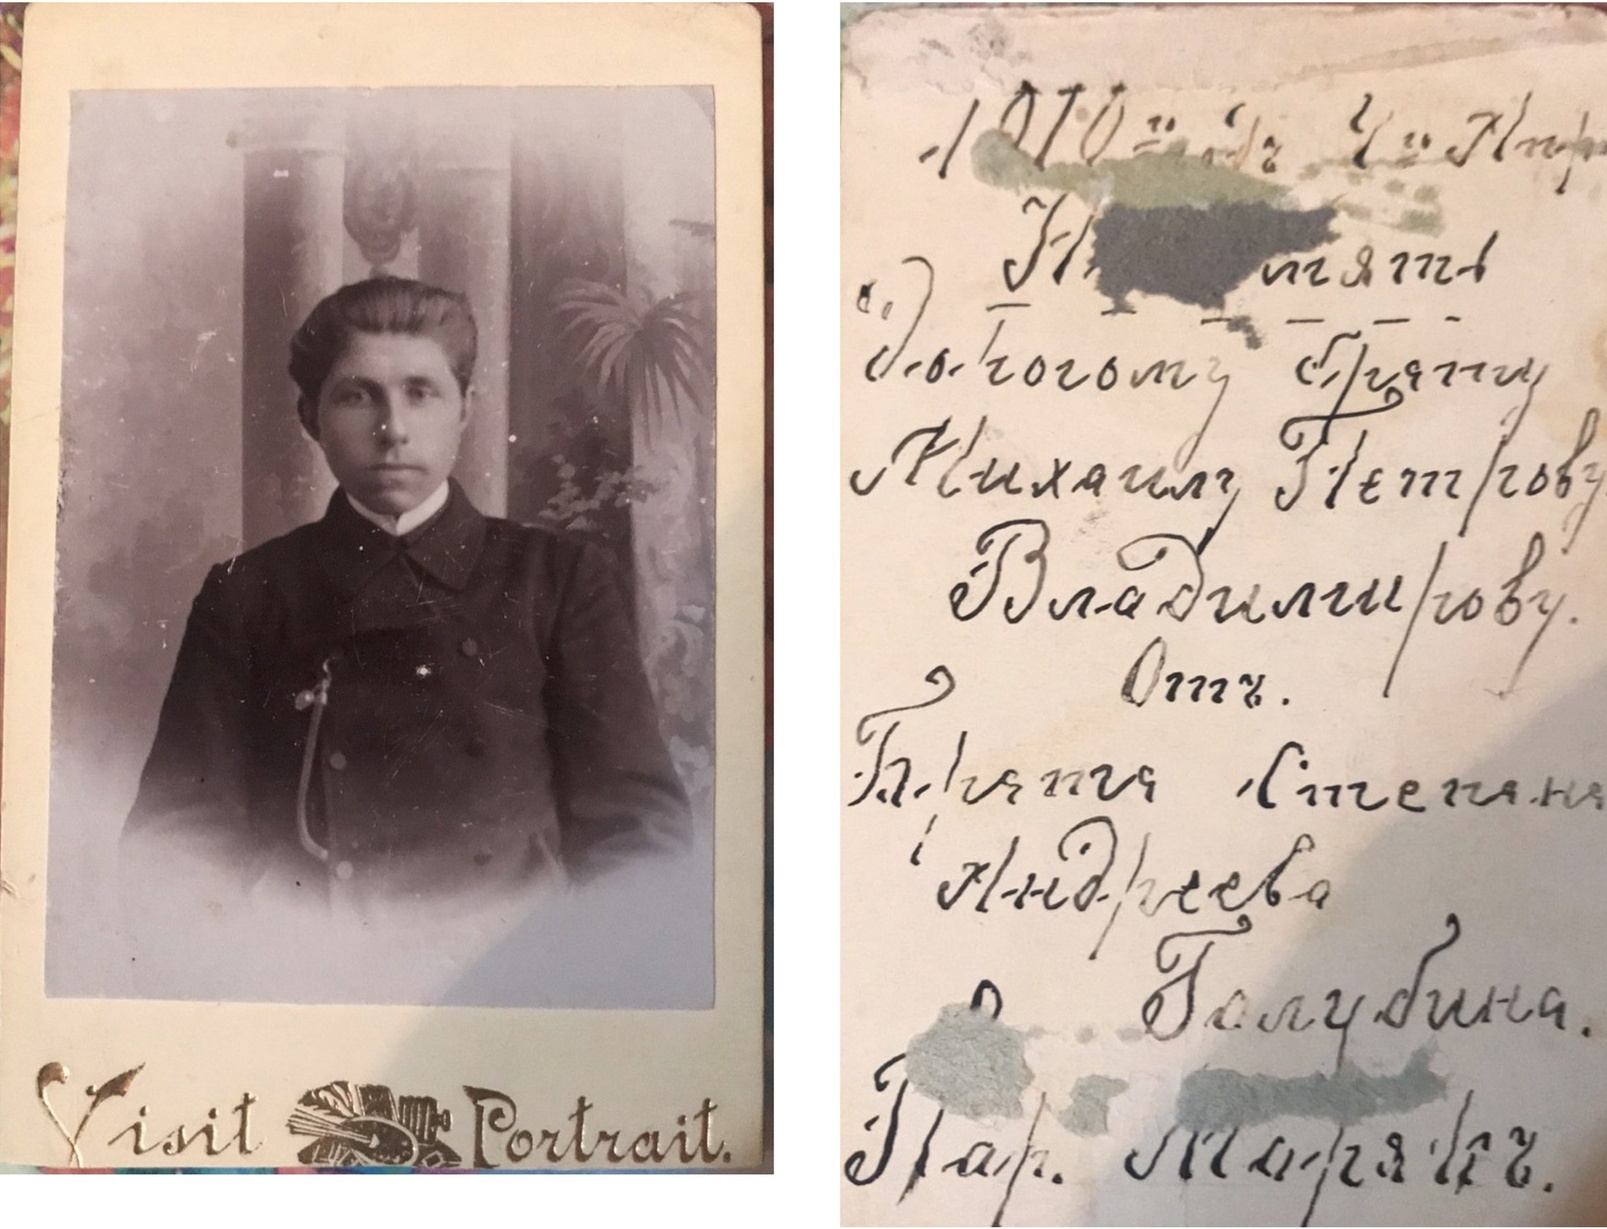 Visit Portrait.
1910 го 4 го Апр
Дорогому брату
Михаилу Петрову
Владимирову.
Отъ.
Брата Степана
Андреева
Голубина.
Пар.